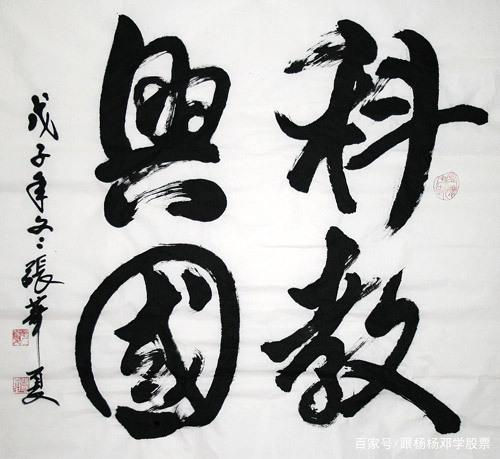 科教
興國
戊子年冬張華夏
百家号/跟杨杨邓学股票